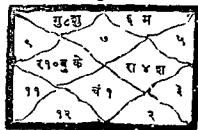 गु८शु ६ म
९ ७ ५
र१०बु के रा ४ श
११ चं १ ३
१२ २